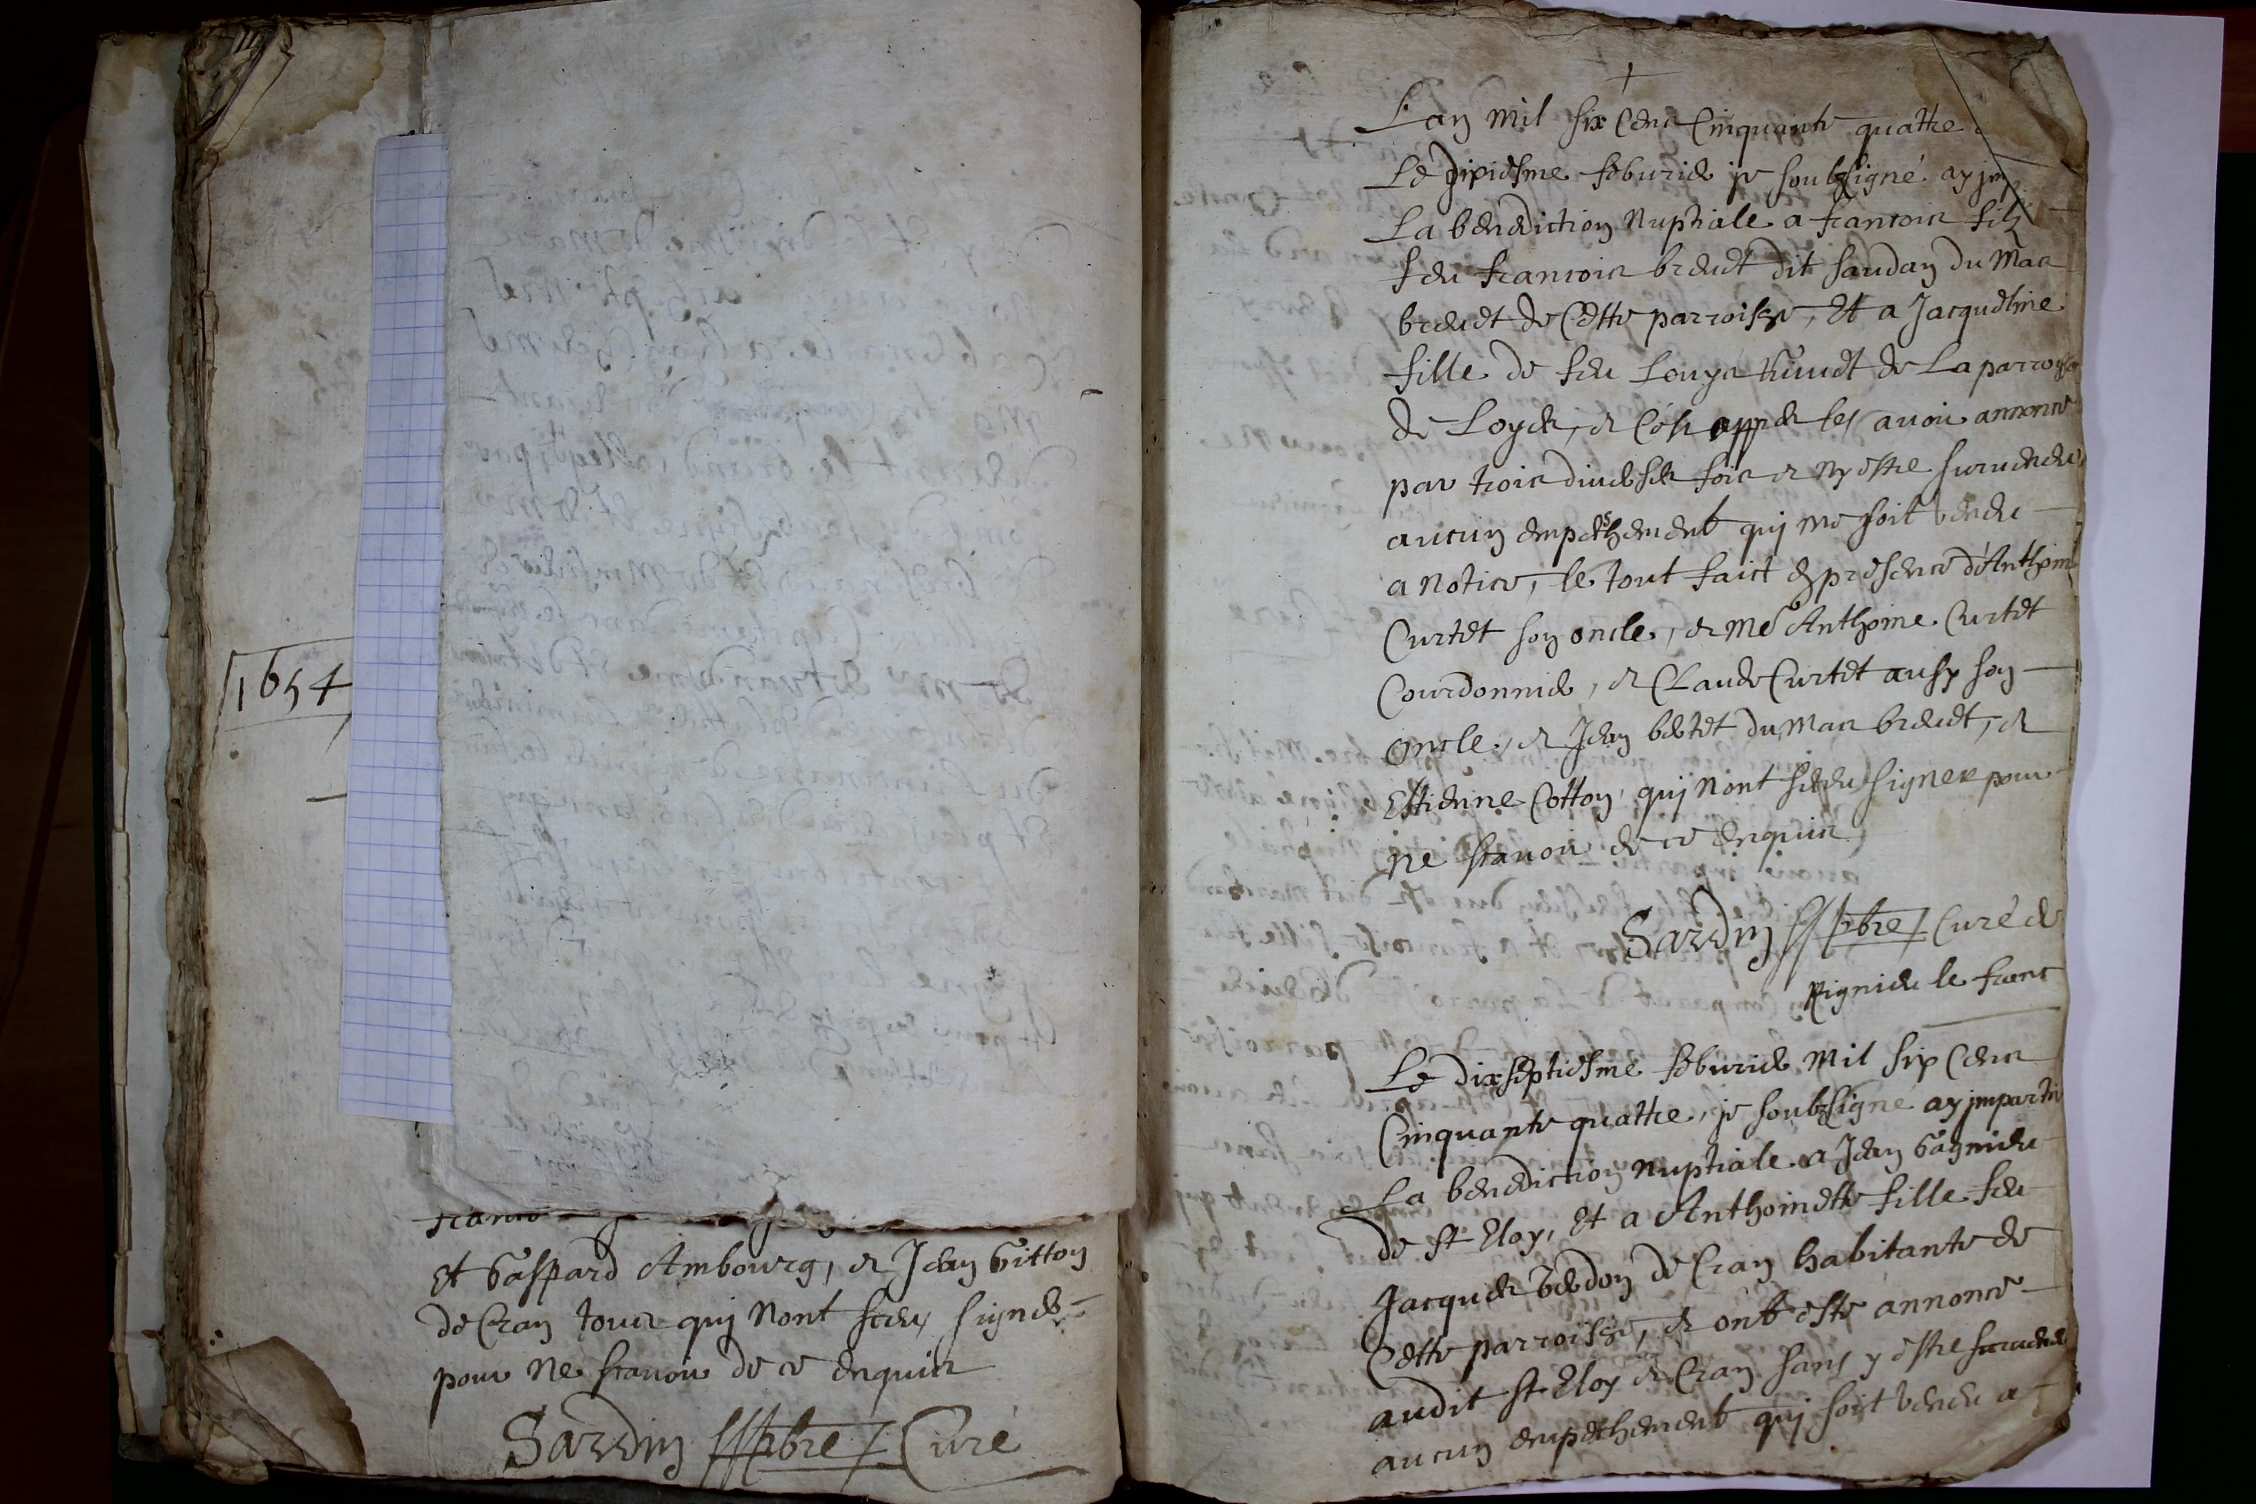 1654
Et Gaspard Ambourg, et Jean Gitton
de Cran tous qui nont sceu signer
pour ne scavoir de ce enquis
Sardin pbre Curé
L'an mil six cens cinquante quattre
Le dixiesme febvrier je soubsigné ay jm
La benediction nuptiale a francois filz
feu francois brevet dit saudan du Mas
brevet de Cette parroisse, Et a Jacquesme
fille de feu Louys de La parroisse
de Loyes, et Ce apprès les avoir annoncé
par trois diverses fois et ny estre surveneu
aucun empeschement qui me soit veneu
a notice, le tout faict en presence d'Anthoine
Curtet son oncle, et me Anthoine Curtet
Courdonnier, et Claude Curtet aussy son
oncle, et Jean bertet du Mas brevet, et
Estienne Cotton, qui nont sceu signer pour
ne scavoir de ce enquis
Sardin pbre Curé de
Rignieu le franc
Le dixseptiesme febvrier mil six cens
Cinquante quattre, je soubsigné ay jmparti
La benediction nuptiale a Jean Gagnieu
de st Eloy, Et a Anthoinette fille feu
Jacques Verdon de Cran habitante de
Cette parroisse, et ont esté annoncé
audit st Eloy et Cran sans y estre surveneu
aucun empechement qui soit veneu a